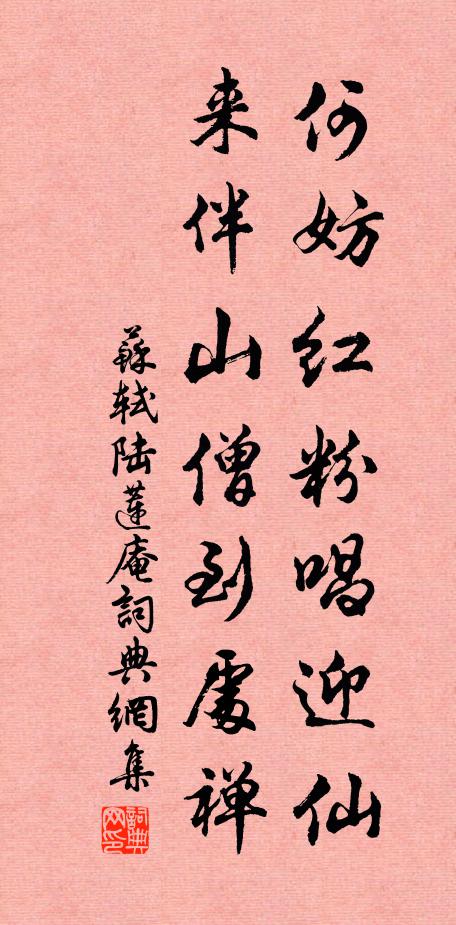 何妨红粉唱迎仙
来伴山僧到處禅
蘇轼陆蓮庵詞典網集
詞典网印